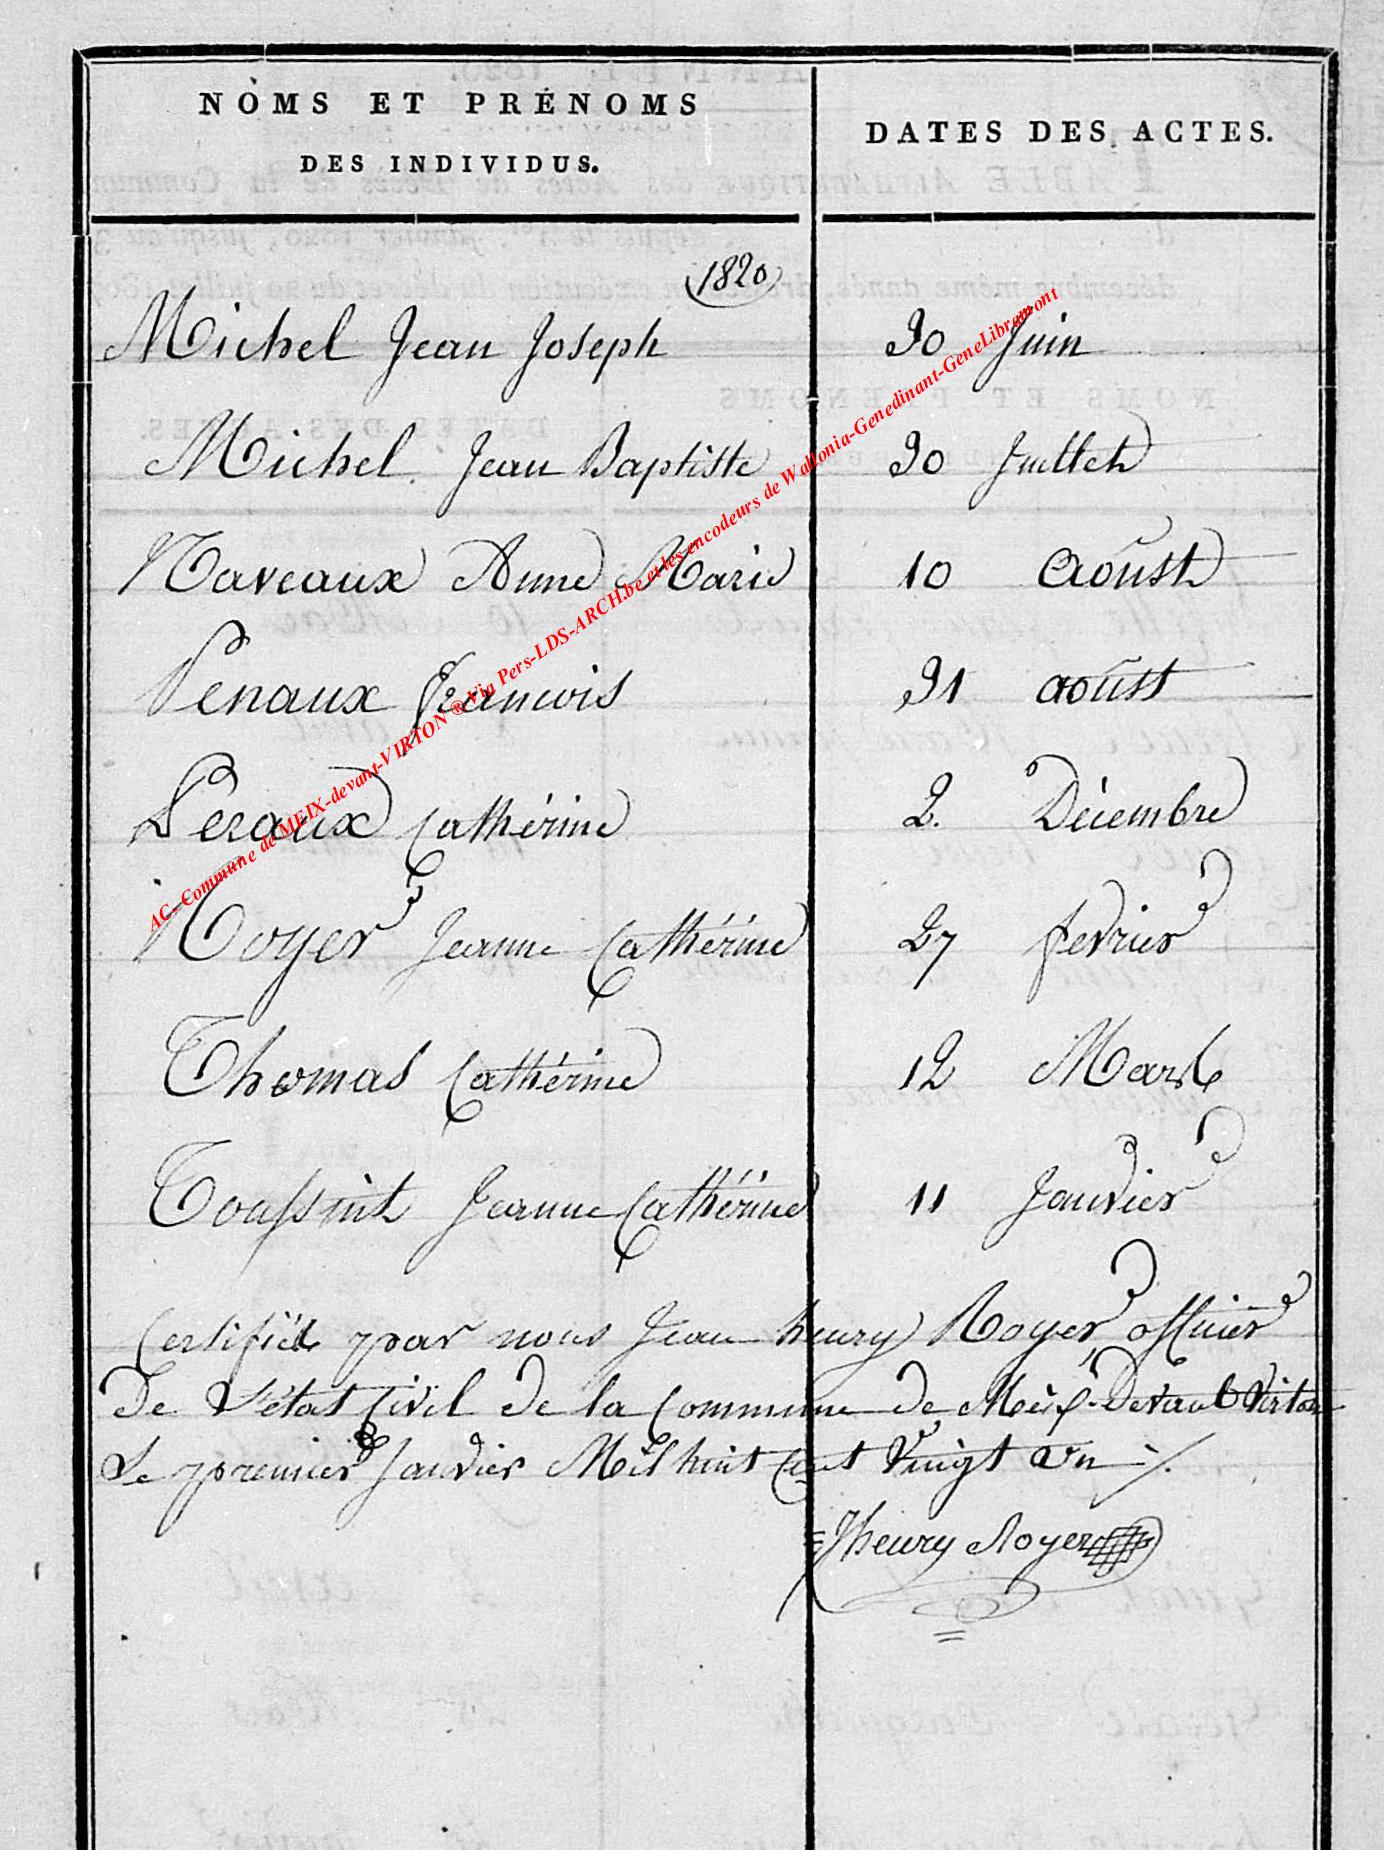 NOMS ET PRÉNOMS DES INDIVIDUS.
DATES DES ACTES.
1820
Michel Jean Joseph 30 Juin
Michel Jean Baptiste 30 Juillet
Naveaux Anne Marie 10 Aoust
Penaux Francois 31 aoust
Peraux Cathérine 2. Décembre
Royer Jeanne Cathérine 27 fevrier
Thomas Cathérine 12 Mars
Toussint Jeanne Cathérine 11 Janvier
Certifié par nous Jean henry Royer officier
De L'état Civil de la Commune de Meix-Devant Virton
Le premier Janvier Mil huit Cent Vingt un
Jhenry Royer
AC- Commune de MEIX-devant-VIRTON ® Via Pers-LDS-ARCH.be et les encodeurs de Wallonia-Genedinant-GeneLibramont